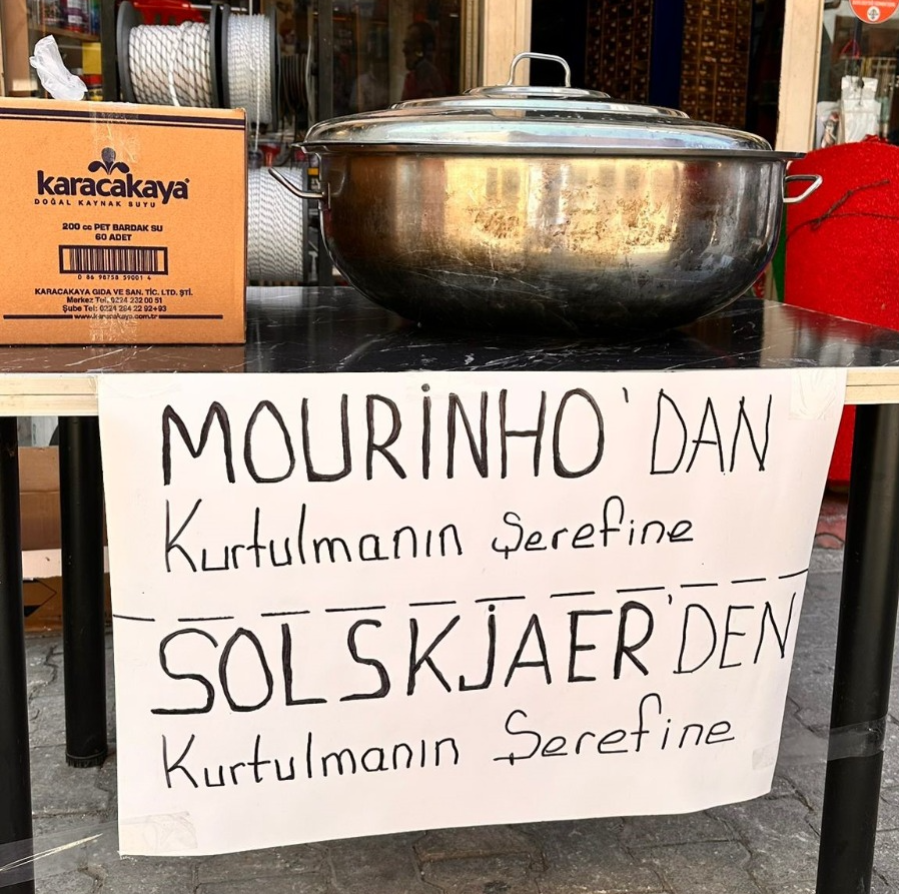 karacakaya
DOĞAL KAYNAK SUYU
200 cc PET BARDAK SU
60 ADET
KARACAKAYA GIDA VE SAN. TİC. LTD. ŞTİ.
Merkez Tel: 0224 232 00 51
Şube Tel: 0224 264 22 92+93
www.karacakaya.com.tr
MOURİNHO'DAN
Kurtulmanın Şerefine
SOLSKJAER'DEN
Kurtulmanın Şerefine